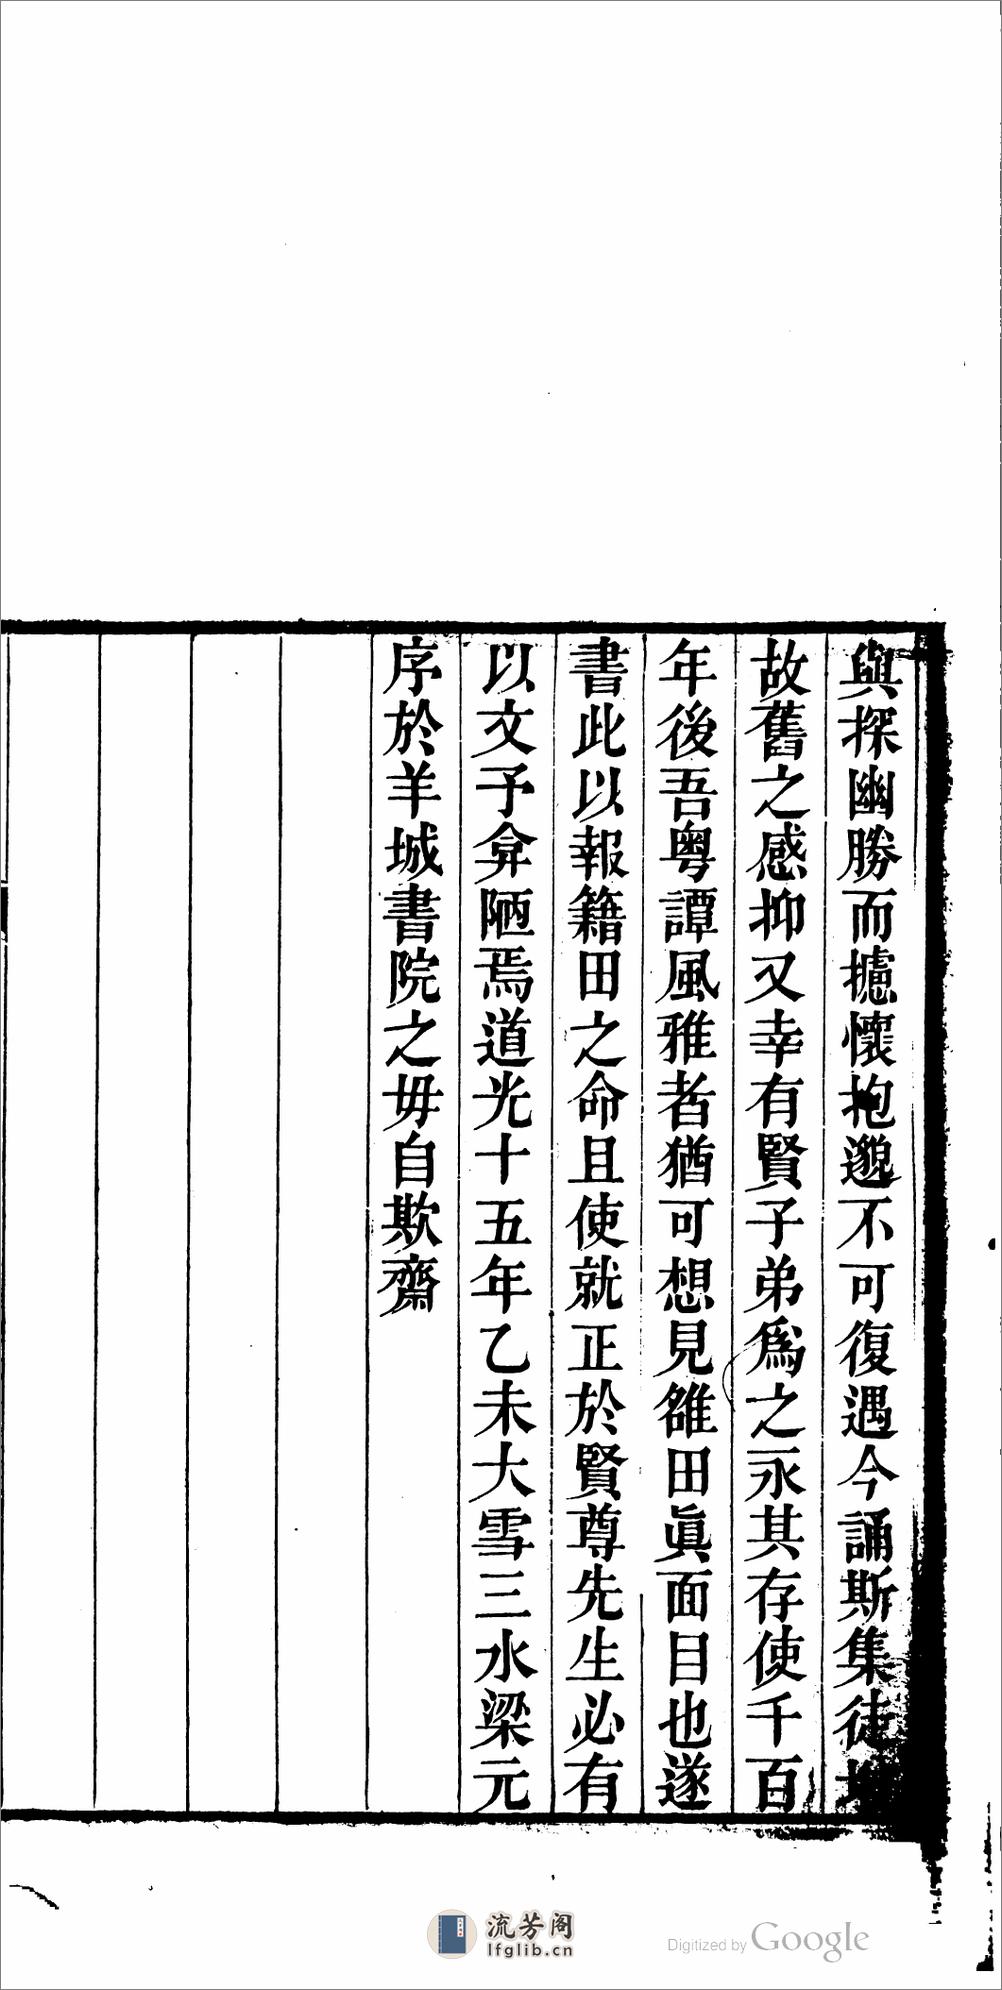 與探幽勝而攄懷抱邈不可復遇今誦斯集徒增
故舊之感抑又幸有賢子弟爲之永其存使千百
年後吾粤譚風雅者猶可想見雒田眞面目也遂
書此以報籍田之命且使就正於賢尊先生必有
以文予弇陋焉道光十五年乙未大雪三水梁元
序於羊城書院之毋自欺齋
流芳阁
lfglib.cn
Digitized by Google